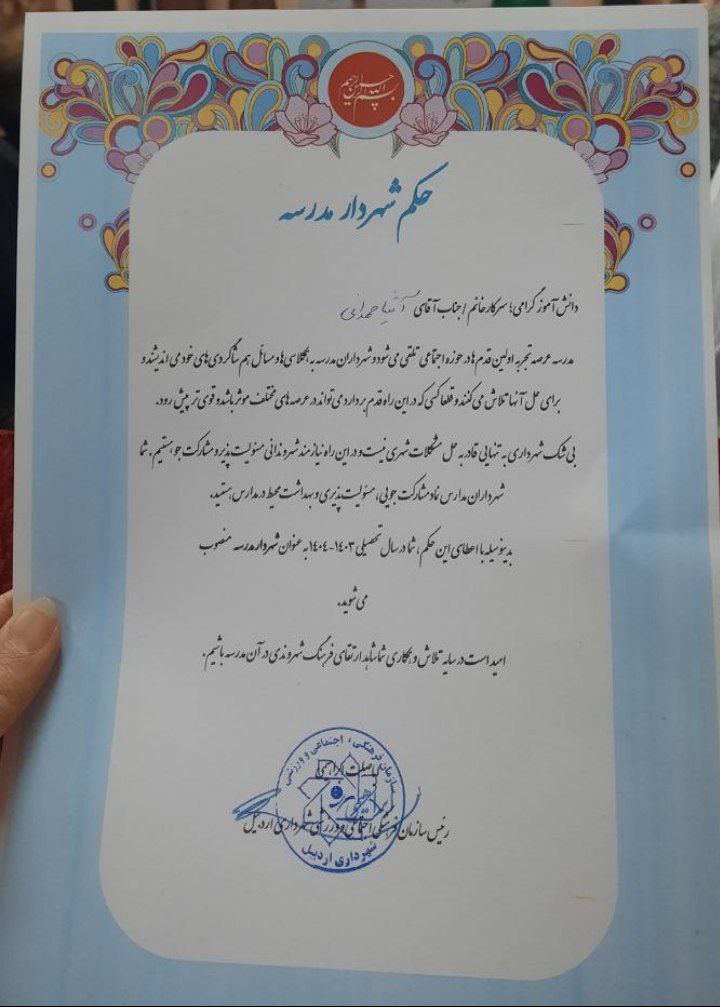 بسم الله الرحمن الرحیم
حکم شهردار مدرسه
دانش آموز گرامی؛ سرکار خانم / جناب آقای
مدرسه عرصه تجربه اولین قدم ها در حوزه اجتماعی تلقی می شود و شهرداران مدرسه به همکلاسی ها و مسائل هم شاگردی های خود می اندیشند و
برای حل آنها تلاش می کنند و قطعا کسی که در این راه قدم بردارد می تواند در عرصه های مختلف موثر باشد و قوی تر پیش رود.
بی شک شهرداری به تنهایی قادر به حل مشکلات شهری نیست و در این راه نیازمند شهروندانی مسئولیت پذیر و مشارکت جو هستیم. شما
شهرداران مدارس نماد مشارکت جویی، مسئولیت پذیری و بهداشت محیط در مدارس هستید.
بدینوسیله با اعطای این حکم، شما در سال تحصیلی ۱۴۰۳-۱۴۰۴ به عنوان شهردار مدرسه منصوب
می شوید.
امید است در سایه تلاش و همکاری شما شاهد ارتقای فرهنگ شهروندی در آن مدرسه باشیم.
سازمان فرهنگی، اجتماعی و ورزشی
رئیس سازمان فرهنگی اجتماعی و ورزشی شهرداری اردبیل
شهرداری اردبیل